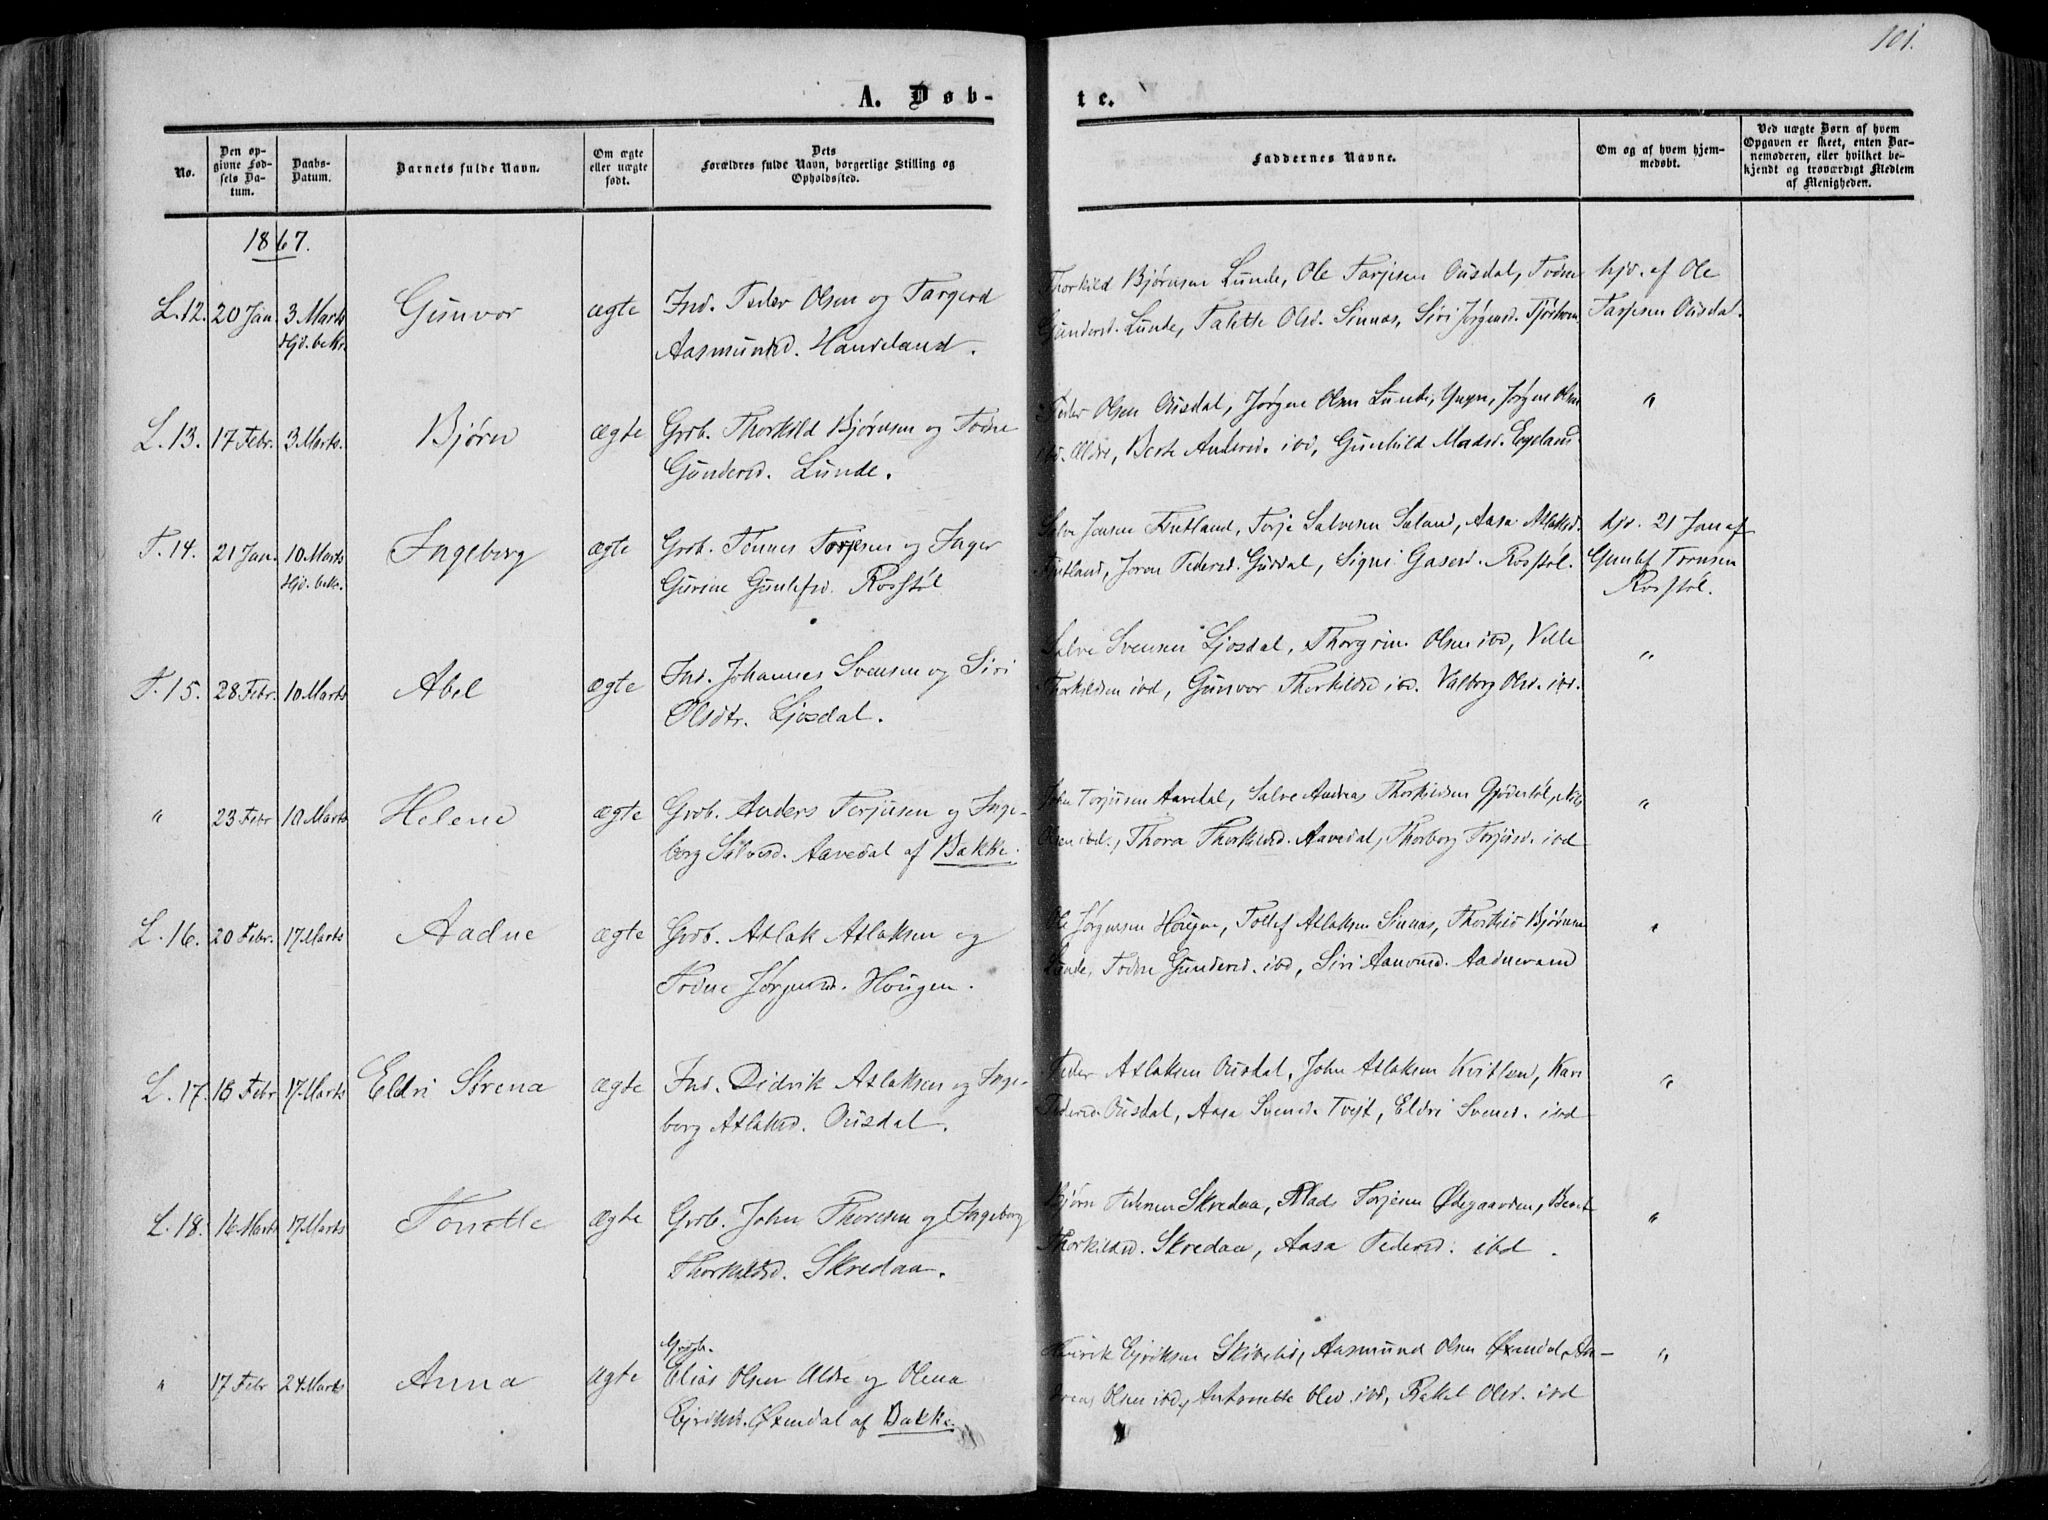 101.
A. Døb-
te.
No.
Den op-
givne Fød-
sels Da-
tum.
Daabs-
Datum.
Barnets fulde Navn.
Om ægte
eller uægte
født.
Dets
Forældres fulde Navn, borgerlige Stilling og
Opholdssted.
Faddernes Navne.
Om og af hvem hjem-
medøbt.
Ved uægte Børn af hvem
Opgaven er skeet, enten Bar-
nemoderen, eller hvilket be-
kjendt og troværdigt Medlem
af Menigheden.
1867.
L. 12. 20 Jan. 3 Marts Gunvor ægte Ind. Peder Olsen og Targerd
Hjd. bekr. Aasmundsd. Haudeland.
Thorkild Bjørnsen Lunde, Ole Tarjesen Ousdal, Todne
Gundersd. Lunde, Talette Olsd. Sinnas, Siri Jørgensd. Tjørhom
hjd. af Ole
Tarjesen Ousdal.
L. 13. 17 Febr. 3 Marts. Bjørn ægte Grdb. Thorkild Bjørnsen og Todne
Gundersd. Lunde.
Peder Olsen Ousdal, Jørgen Olsen Lunde, Yngre, Jørgen Olsen
ibd. Ældre, Berte Andersd. ibd, Gunhild Madsd. Egeland
"
T. 14. 21 Jan. 10 Marts Ingeborg ægte Grdb. Tønnes Torjesen og Inger
Hjd. bekr. Gurine Gunlefsd. Rosstøl
Salve Jensen Fintland, Torje Salvesen Saland, Aasa Atlaksd.
Fintland, Joren Pedersd. Guddal, Signi Gasesd. Rosstøl.
hjd. 21 Jan af
Gunlef Tornsen
Rosstøl.
T. 15. 28 Febr. 10 Marts Abel ægte Ind. Johannes Svensen og Siri
Olsdtr. Ljosdal.
Salve Svensen Ljosdal, Thorgrim Olsen ibd, Ville
Thorkildsen ibd, Gunvor Thorkildsd ibd. Valborg Olsd. ibd.
"
" 23 Febr 10 Marts Helene ægte Grdb. Anders Terjusen og Inge-
borg Salvesd. Aavedal af Bakke.
John Torjusen Aavedal, Salve Andreas Thorkildsen
Olsen ibd., Thora Thorkildsd. Aavedal, Thorborg Torjusd. ibd
"
L. 16. 20 Febr. 17 Marts Aadne ægte Grdb. Atlak Atlaksen og
Todne Jørgensd. Hougen.
Ole Jørgensen Hougen, Tollef Atlaksen Sinnas, Thorkild Bjørnsen
Lunde, Todne Gundersd. ibd, Siri Aanensd. Aadneram
"
L. 17. 18 Febr. 17 Marts Eldri Sirena ægte Ind. Didrik Atlaksen og Inge-
borg Atlaksd. Ousdal.
Peder Atlaksen Ousdal, John Atlaksen Kvitlen, Kari
Pedersd. Ousdal, Aasa Svensd. Tvejt, Eldri Svensd. ibd
"
L. 18. 16 Marts 17 Marts Tonette ægte Grdb. John Thoresen og Ingeborg
Thorkildsd. Skredaa.
Bjørn Pedersen Skredaa, Mads Torjesen Ødegaarden, Berit
Thorkildsd. Skredaa, Aasa Pedersd. ibd.
"
" 17 Febr 24 Marts Anna ægte Grdb.
Elias Olsen Aldre og Olena
Ejriksd. Øxendal af Bakke.
Henrik Ejriksen Skibelid, Aasmund Olsen Øxendal, An-
dreas Olsen ibd, Antonette Olsd. ibd, Rakel Olsd. ibd
"